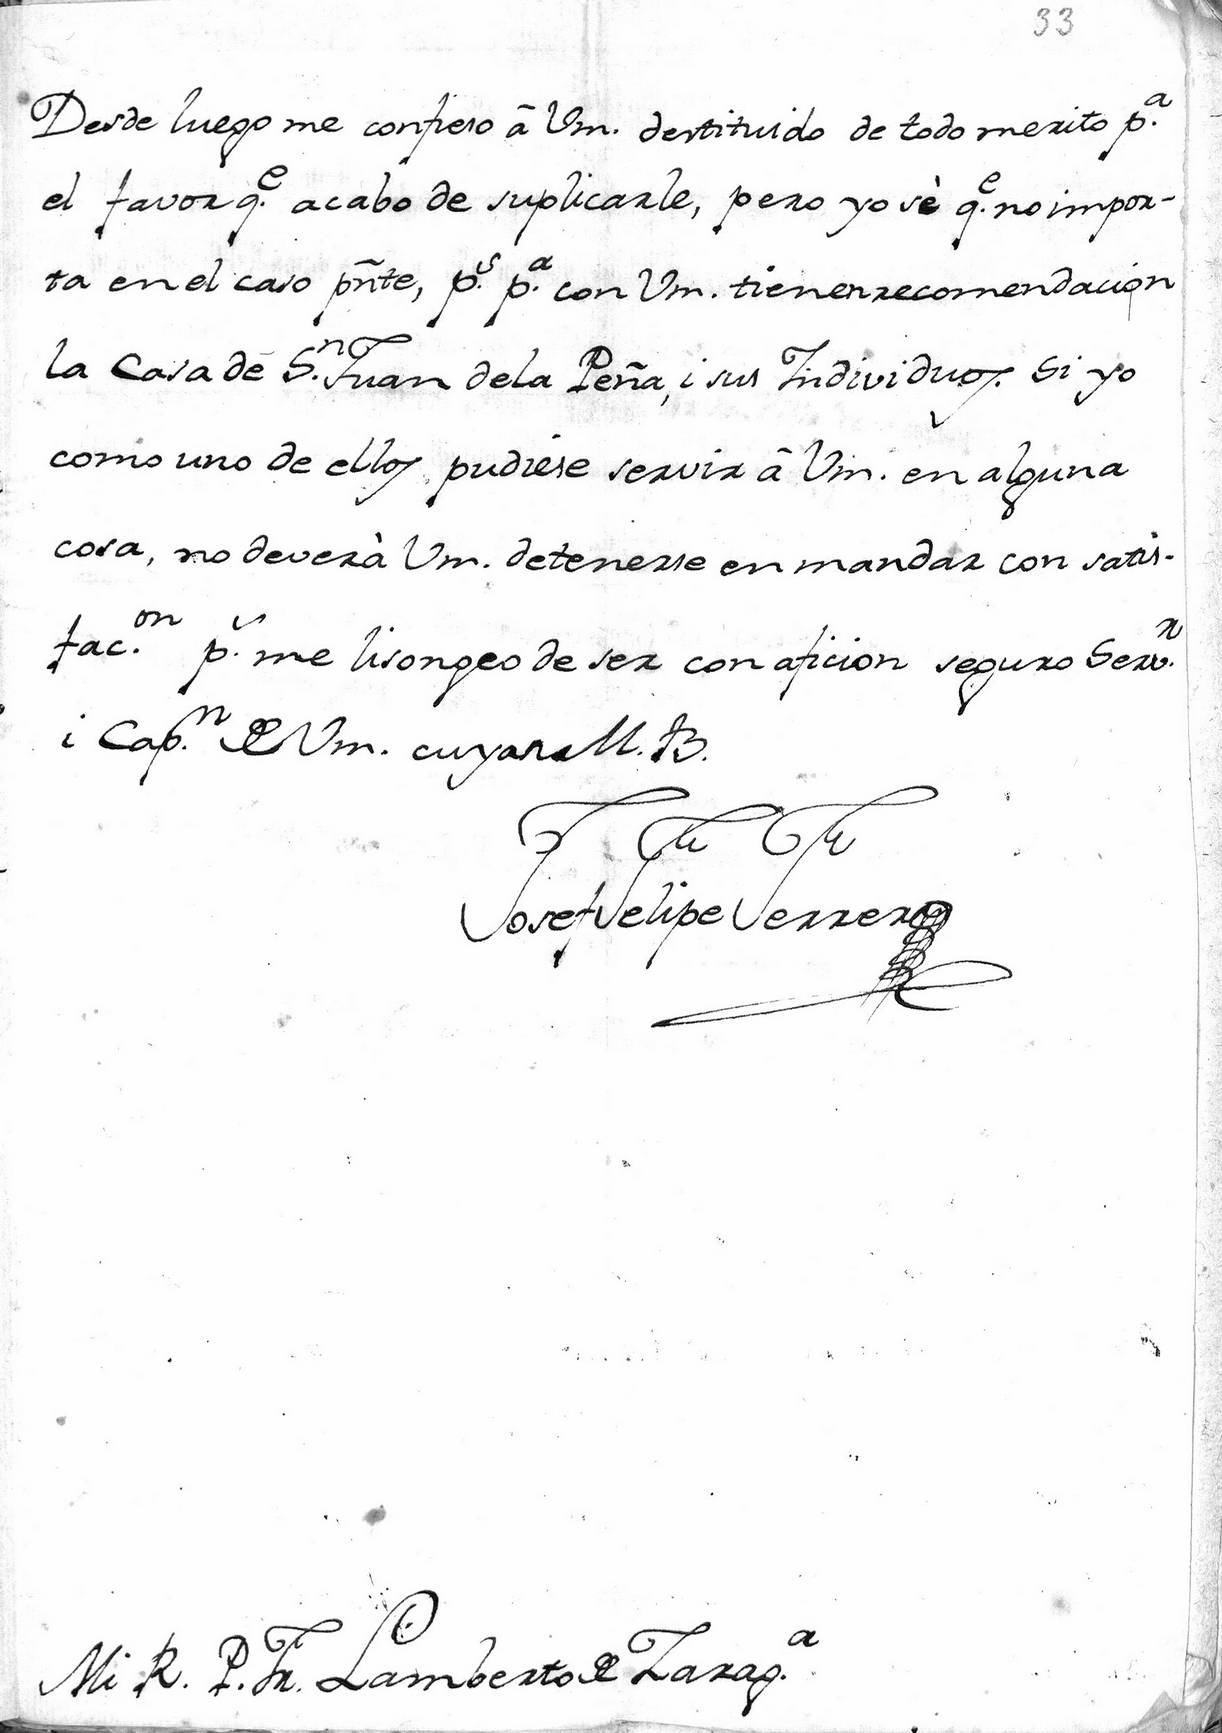 33
Desde luego me confieso â Vm. destituido de todo merito p.ª
el favor q.e acabo de suplicarle, pero yo sè q.e no impor-
ta en el caso pñte, p.s p.ª con Vm. tienen recomendacion
la Casa de S.n Juan dela Peña, i sus Individuos. Si yo
como uno de ellos pudiese servir â Vm. en alguna
cosa, no deverà Vm. detenerse en mandar con satis-
fac.on p.s me lisongeo de ser con aficion seguro Serv.r
i Cap.n de Vm. cuya M. B.
Josef Felipe Ferrer
Mi R. P. Fr. Lamberto de Zarag.ª